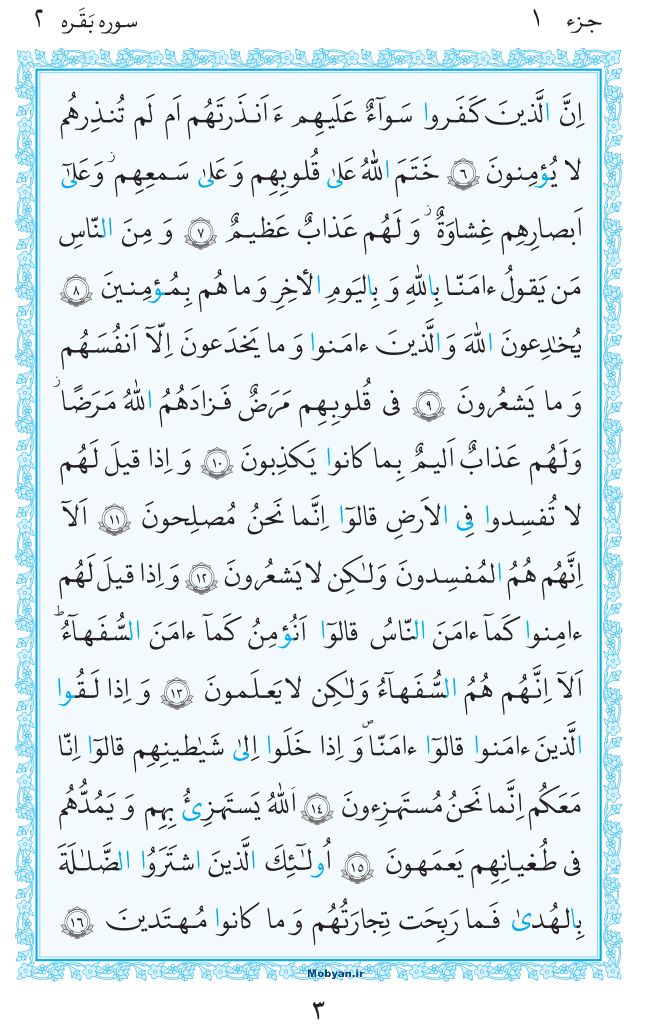 جزء ۱
سوره بَقَره ۲
اِنَّ الَّذينَ كَفَروا سَوآءٌ عَلَيهِم ءَاَنذَرتَهُم اَم لَم تُنذِرهُم
لا يُؤمِنونَ ۶ خَتَمَ اللهُ عَلىٰ قُلوبِهِم وَ عَلىٰ سَمعِهِم ۖ وَ عَلىٰٓ
اَبصارِهِم غِشاوَةٌ ۖ وَ لَهُم عَذابٌ عَظيمٌ ۷ وَ مِنَ النّاسِ
مَن يَقولُ ءامَنّا بِاللهِ وَ بِاليَومِ الأخِرِ وَ ما هُم بِمُؤمِنينَ ۸
يُخٰدِعونَ اللهَ وَ الَّذينَ ءامَنوا وَ ما يَخدَعونَ اِلّآ اَنفُسَهُم
وَ ما يَشعُرونَ ۹ فى قُلوبِهِم مَرَضٌ فَزادَهُمُ اللهُ مَرَضًا ۖ
وَلَهُم عَذابٌ اَليمٌ بِما كانوا يَكذِبونَ ۱۰ وَ اِذا قيلَ لَهُم
لا تُفسِدوا فِى الاَرضِ قالوٓا اِنَّما نَحنُ مُصلِحونَ ۱۱ اَلآ
اِنَّهُم هُمُ المُفسِدونَ وَلٰكِن لا يَشعُرونَ ۱۲ وَ اِذا قيلَ لَهُم
ءامِنوا كَمآ ءامَنَ النّاسُ قالوٓا اَنُؤمِنُ كَمآ ءامَنَ السُّفَهآءُ ۗ
اَلآ اِنَّهُم هُمُ السُّفَهآءُ وَلٰكِن لا يَعلَمونَ ۱۳ وَ اِذا لَقُوا
الَّذينَ ءامَنوا قالوٓا ءامَنّا وَ اِذا خَلَوا اِلىٰ شَيٰطينِهِم قالوٓا اِنّا
مَعَكُم اِنَّما نَحنُ مُستَهزِءونَ ۱۴ اَللهُ يَستَهزِئُ بِهِم وَ يَمُدُّهُم
فى طُغيانِهِم يَعمَهونَ ۱۵ اُولٰٓئِكَ الَّذينَ اشتَرَوُا الضَّلٰلَةَ
بِالهُدىٰ فَما رَبِحَت تِجارَتُهُم وَ ما كانوا مُهتَدينَ ۱۶
Mobyan.ir
۳